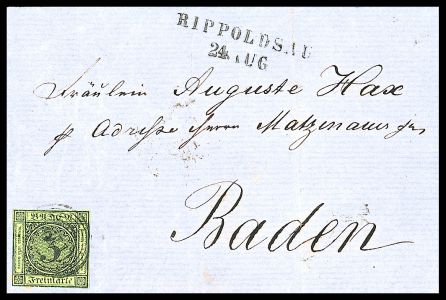 RIPPOLDSAU
24 AUG
Fräulein Auguste Hax
Adresse Herrn
Baden
BADEN
3
Freimarke